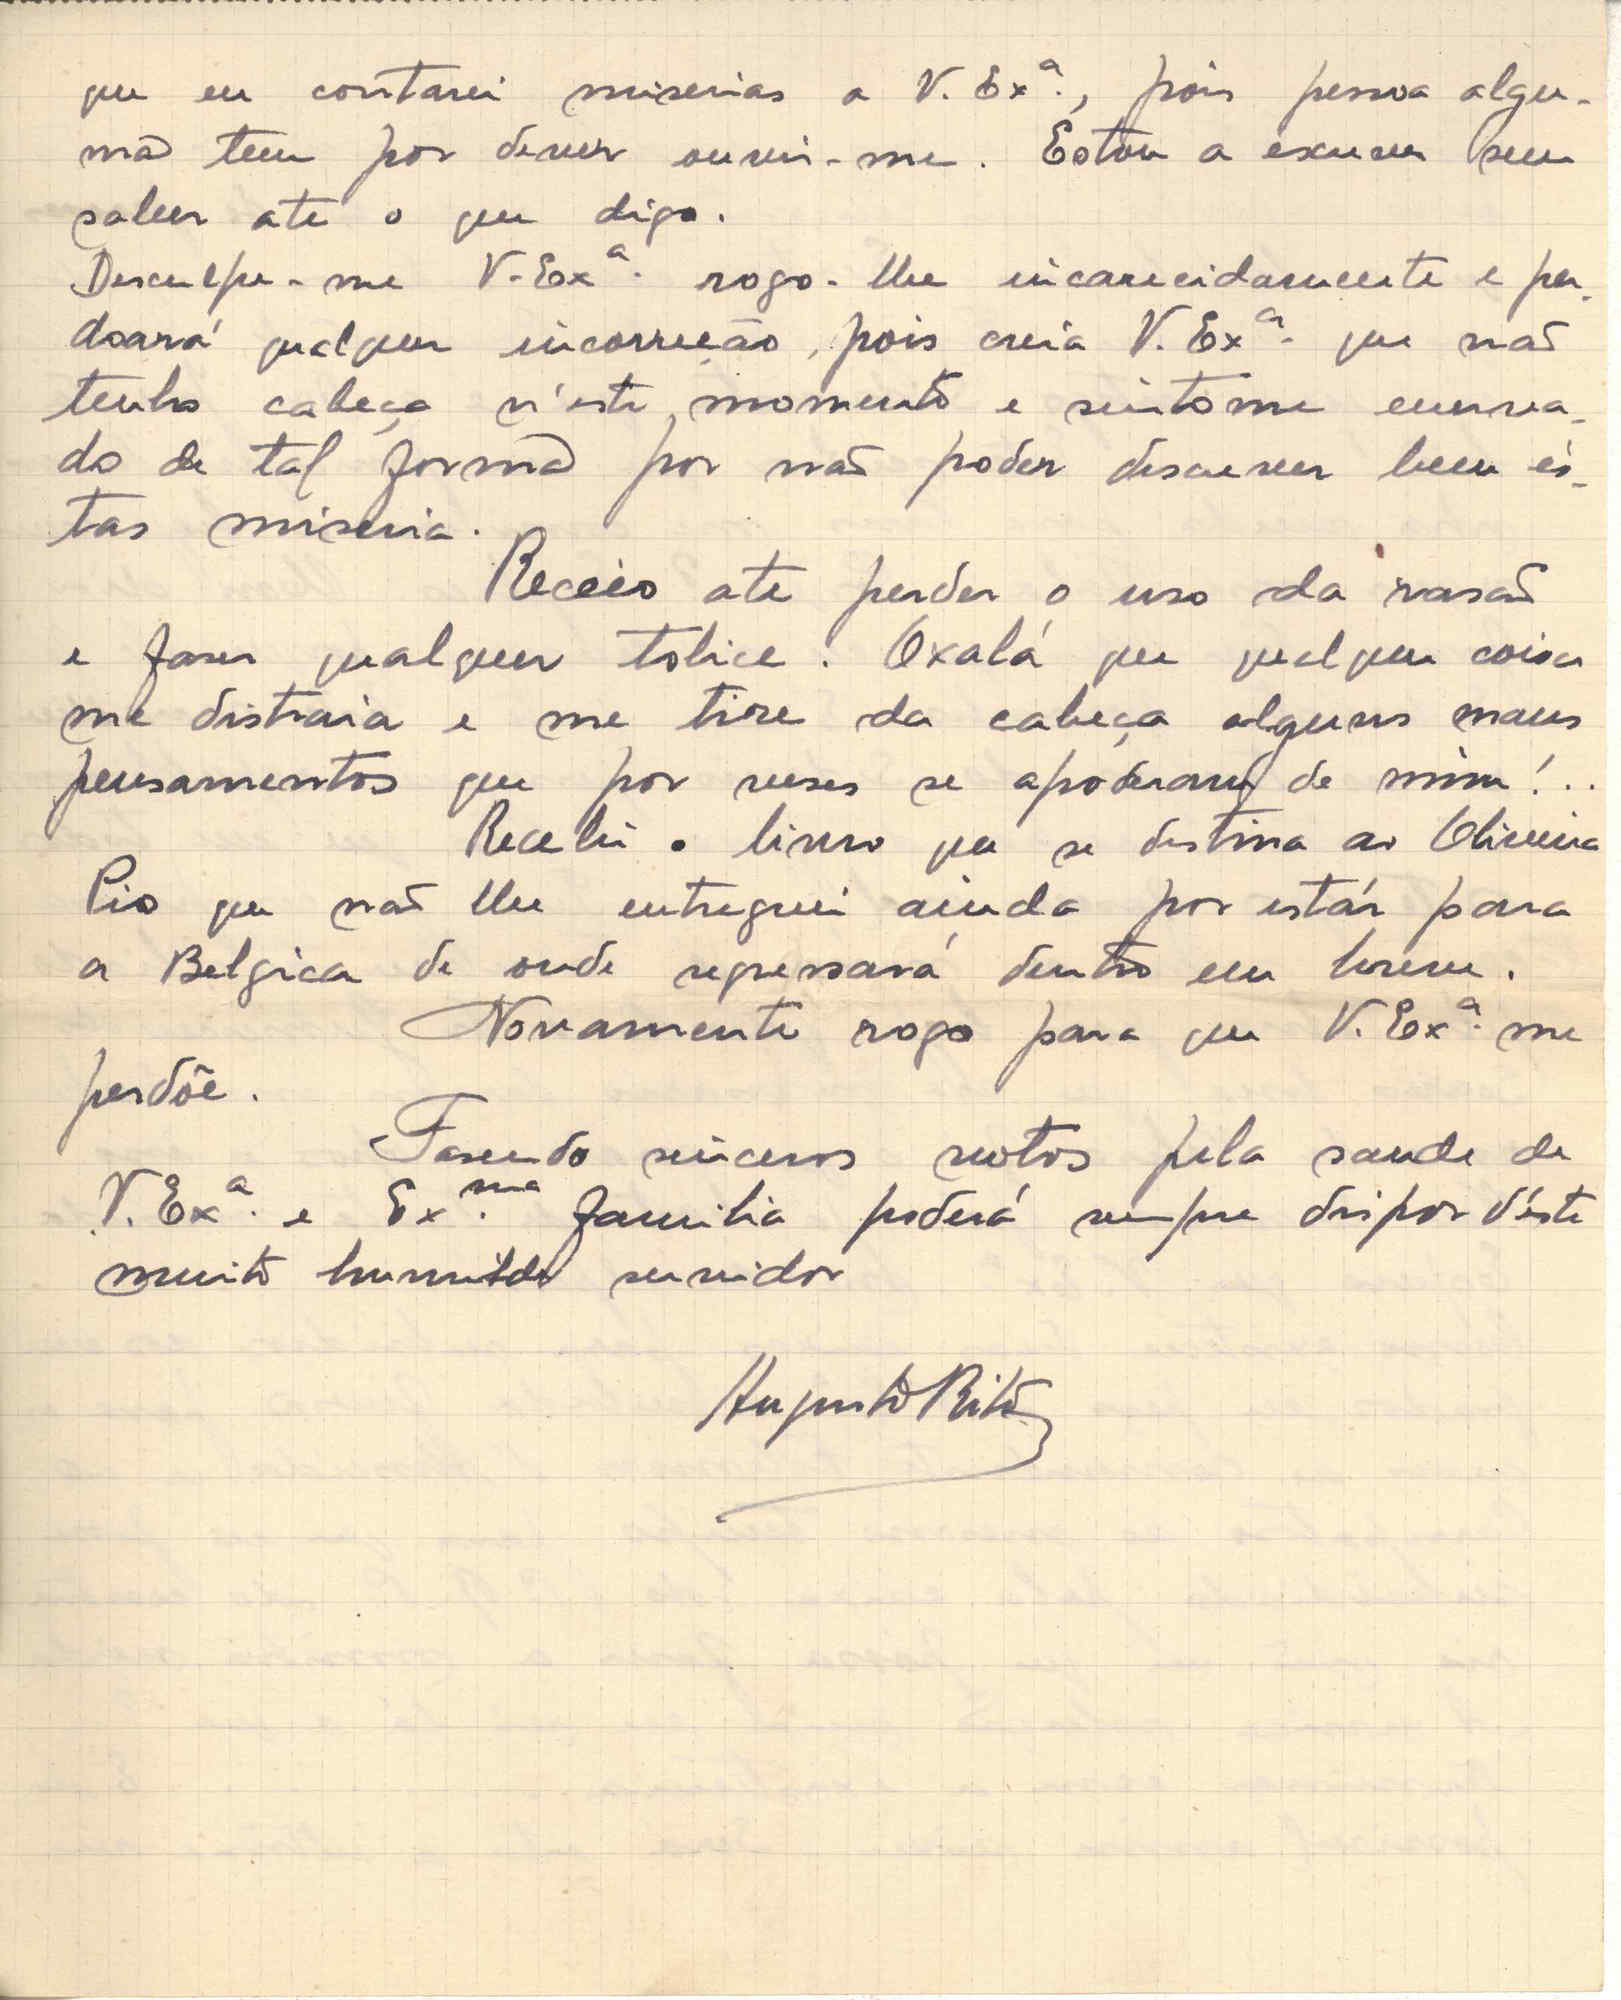 que eu contarei miserias a V. Exª., pois pessoa algu-
ma tem por dever ouvir-me. Estou a escrever sem
saber ate o que digo.
Desculpe-me V. Exª. rogo-lhe incarecidamente e per-
doará qualquer incorreção, pois creia V. Exª. que não
tenho cabeça n'este momento e sintome enerva-
do de tal forma por não poder descrever bem és-
tas miseria.
Receio ate perder o uso da rasão
e faser qualquer tolice. Oxalá que qualquer coisa
me distraia e me tire da cabeça alguns maus
pensamentos que por veses se apoderam de mim!...
Recebi o livro que se destina ao Oliveira
Pio que não lhe entreguei ainda por estár para
a Belgica de onde regressará dentro em breve.
Novamente rogo para que V. Exª. me
perdõe.
Fasendo sinceros votos pela saude de
V. Exª. e Exma. familia poderá sempre dispor d'éste
muito humilde servidor
Augusto Rito